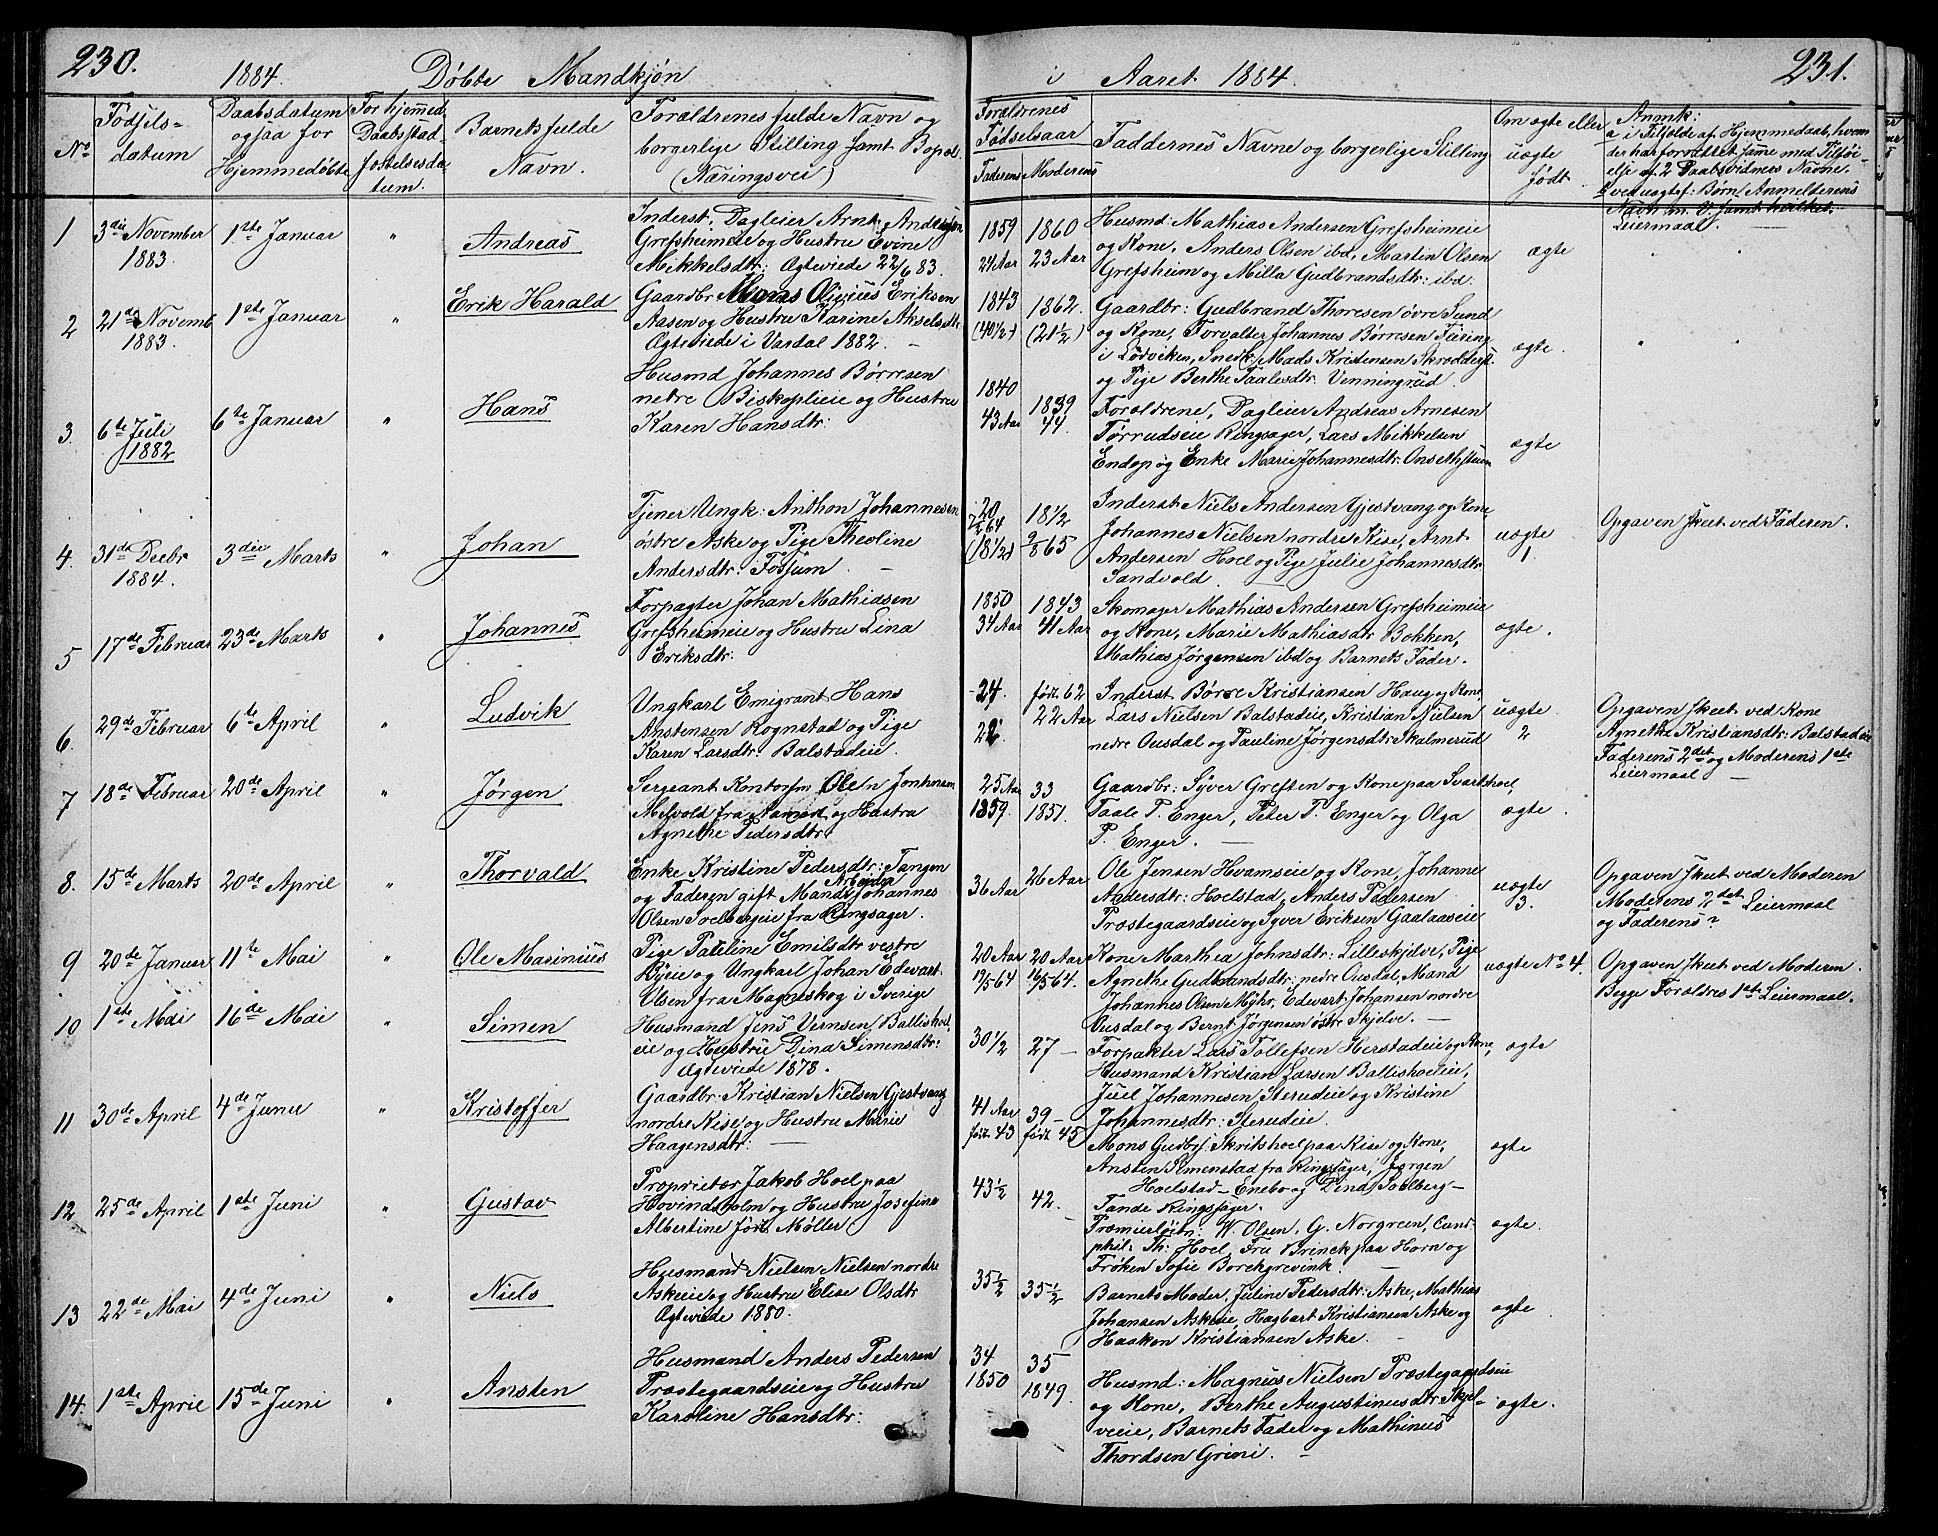 230.
1884. Döbte Mandkjön
No
Födsils=
datum
Daabsdatum
ogsaa for
Hjemmedöbte
For hjemmed.
Daabsstad-
fæstelsesda-
tum.
Barnets fulde
Navn.
Forældrenes fulde Navn og
borgerlige Stilling samt Bopæl
(Næringsvei)
1
3die November
1883.
1ste Januar
"
Andreas
Inderst: Dagleier Arnt Andreasen
Grefsheimeie og Hustru Evine
Mikkelsdtr: Ægteviede 22/6 83.
2
21de Novemb
1883.
1ste Januar
"
Erik Harald
Gaardbr Mons Olinius Eriksen
Aasen og Hustru Karine Akselsdtr
Ægteviede i Vardal 1882. –
3.
6te Juli
1882
6te Januar
"
Hans
Husmd Johannes Börresen
nedre Biskoplieie og Hustru
Karen Hansdtr:
4.
31de Decbr
1884.
3die Marts
"
Johan
Tjener Ungk: Anthon Johannesen
östre Aske og Pige Theoline
Andersdtr: Fossum. –
5
17de Februar
23de Marts
"
Johannes
Forpagter Johan Mathiasen
Grefsheimeie og Hustru Lina
Eriksdtr:
6.
29de Februar
6te April
"
Ludvik
Ungkarl Emigrant Hans
Anstensen Rognstad og Pige
Karen Larsdtr: Balstadeie.
7
18de Februar
20de April
"
Jörgen
Sergeant Kontorfm Ole
Melvold fra og Hustru
Agnethe Pedersdtr:
8.
15de Marts
20de April
"
Thorvald
Enke Kristine Pedersdtr: Tangen
og Faderen gift Mand Arbeider Johannes
Olsen Soelbergeie fra Ringsager.
9
20de Januar
11te Mai
"
Ole Marinius
Pige Pauline Emilsdtr vestre
Byeie og Ungkarl Johan Edvart
Olsen fra Magneskog i Sverige
10
1ste Mai
16de Mai
"
Simen
Husmand Jens Vernsen Ballishol-
eie og Hustru Dina Simensdtr:
Ægteviede 1878.
11
30de April
4de Juni
"
Kristoffer
Gaardbr: Kristian Nielsen Gjestvang
nordre Kise og Hustru Marie
Haagensdtr:
12
25de April
1ste Juni
"
Gustav
Proprietær Jakob Hoel paa
Hovindsholm og Hustru Josefine
Albertine föd Möller
13
22de Mai
4de Juni
"
Niels
Husmand Nielsen Nielsen nordre
Askeie og Hustru Elise Olsdtr
Ægteviede 1880.
14.
1ste April
15de Juni
"
Ansten
Husmand Anders Pedersen
Præstegaardseie og Hustru
Karoline Hansdtr:
i Aaret 1884. 231.
Forældrenes
Födselsaar
Faderens Moderens
Faddernes Navne og borgerlige Stilling
Om ægte eller
uægte
födt
Anmk:
a i Tilfælde af Hjemmedaab, hvem
der har forrettet samme med Tilföi-
else af 2 Daabsvidners Navne.
b ved uægtef: Börn Anmelderens
Navn m. V. samt hvilket
Leiermaal.
1859 1860
24 Aar 23 Aar
Husmd: Mathias Andersen Grefsheimeie
og Kone, Anders Olsen ibd, Martin Olsen
Grefsheim og Milla Gudbrandsdtr: ibd.
ægte
"
"
1843 1862.
(40 1/2) (21 1/2)
Gaardbr: Gudbrand Thoresen övre Sund
og Kone, Forvalter Johannes Börresen Feiring
i Lödviken, Snedk Mads Kristensen Skredderst.
og Pige Berthe Taalesdtr: Venningrud.
ægte.
"
"
1840 1839
43 Aar 44.
Forældrene, Dagleier Andreas Arnesen
Törrudseie Ringsager, Lars Mikkelsen
Endop og Enke Marie Johannesdtr:
ægte
20
7/2 64
(18 1/2)
18 1/2
9/8 65
Inderst: Niels Andersen Gjestvang og Kone,
Johannes Nielsen nordre Kise, Arnt
Andersen Hoel og Pige Julie Johannesdtr
Sandvold.
uægte
1.
Opgaven skeet ved Faderen.
1850 1843
34 Aar 41 Aar
Skomager Mathias Andersen Grefsheimeie
og Kone, Marie Mathiasdtr Bokken,
Mathias Jörgensen ibd og Barnets Fader.
ægte.
24. födt 62
22 Aar
Inderst Börre Kristiansen Haug og Kone
Lars Nielsen Balstadeie, Kristian Nielsen
nedre Ousdal og Pauline Jörgensdtr Skalmerud
uægte
2
Opgaven skeet ved Kone
Agnethe Kristiansdtr: Balstadeie
Faderens 2det og Moderens 1ste
Leiermaal –
25 Aar 33
1859. 1851.
Gaardbr: Syver Greften og Kone paa Svartshoel,
Taale P. Enger, Peter P. Enger og Olga
P. Enger. –
ægte.
36 Aar 26 Aar
Ole Jensen Hvamseie og Kone, Johanne
Andersdtr: Hoelstad, Anders Pedersen
Præstegaardseie og Syver Eriksen Gaalaaseie
uægte
3.
Opgaven skeet ved Moderen
Moderens 2det Leiermaal
og Faderens?
20 Aar 20 Aar
12/5 64 16/5 64.
Kone Marthea Johnsdtr: Lilleskjelve, Pige
Agnethe Gudbrandsdtr: nedre Ousdal, Mand
Johannes Olsen Myhr, Edvart Johansen nordre
Ousdal og Bernt Jörgensen östre Skjelve. –
uægte No 4.
Opgaven skeet ved Moderen.
Begge Forældres 1ste Leiermaal.
30 1/2 27 –
Forpakter Lars Tollefsen Herstadeie og Kone,
Husmand Kristian Larsen Ballishoeleie,
Juel Johannesen Sterudeie og Kristine
Johannesdtr: Sterudeie.
ægte
41 Aar 39 –
födt 43 födt 45
Mons Gudbrs: Skritshoel paa Kise og Kone,
Ansten Simenstad fra Ringsager, Jörgen
Hoelstad – Enebo og Dina Soelberg –
Tande Ringsager.
ægte
43 1/2 42.
Præmielöitn: W. Olsen, G. Norgreen, Cand.
phil: Th: Hoel, Fru Brinck paa Horn og
Fröken Sofie Borchgrevink. –
ægte.
35 1/2 35 1/2
Barnets Moder, Juline Pedersdtr: Aske, Mathias
Johansen Askeie, Hagbart Kristiansen Aske og
Haakon Kristiansen Aske. –
ægte.
34 35
1850 1849.
Husmd: Magnus Nielsen Præstegaardseie
og Kone, Berthe Augustinusdtr Skjel-
veeie, Barnets Fader og Mathinus
Thordsen Grini. –
ægte.